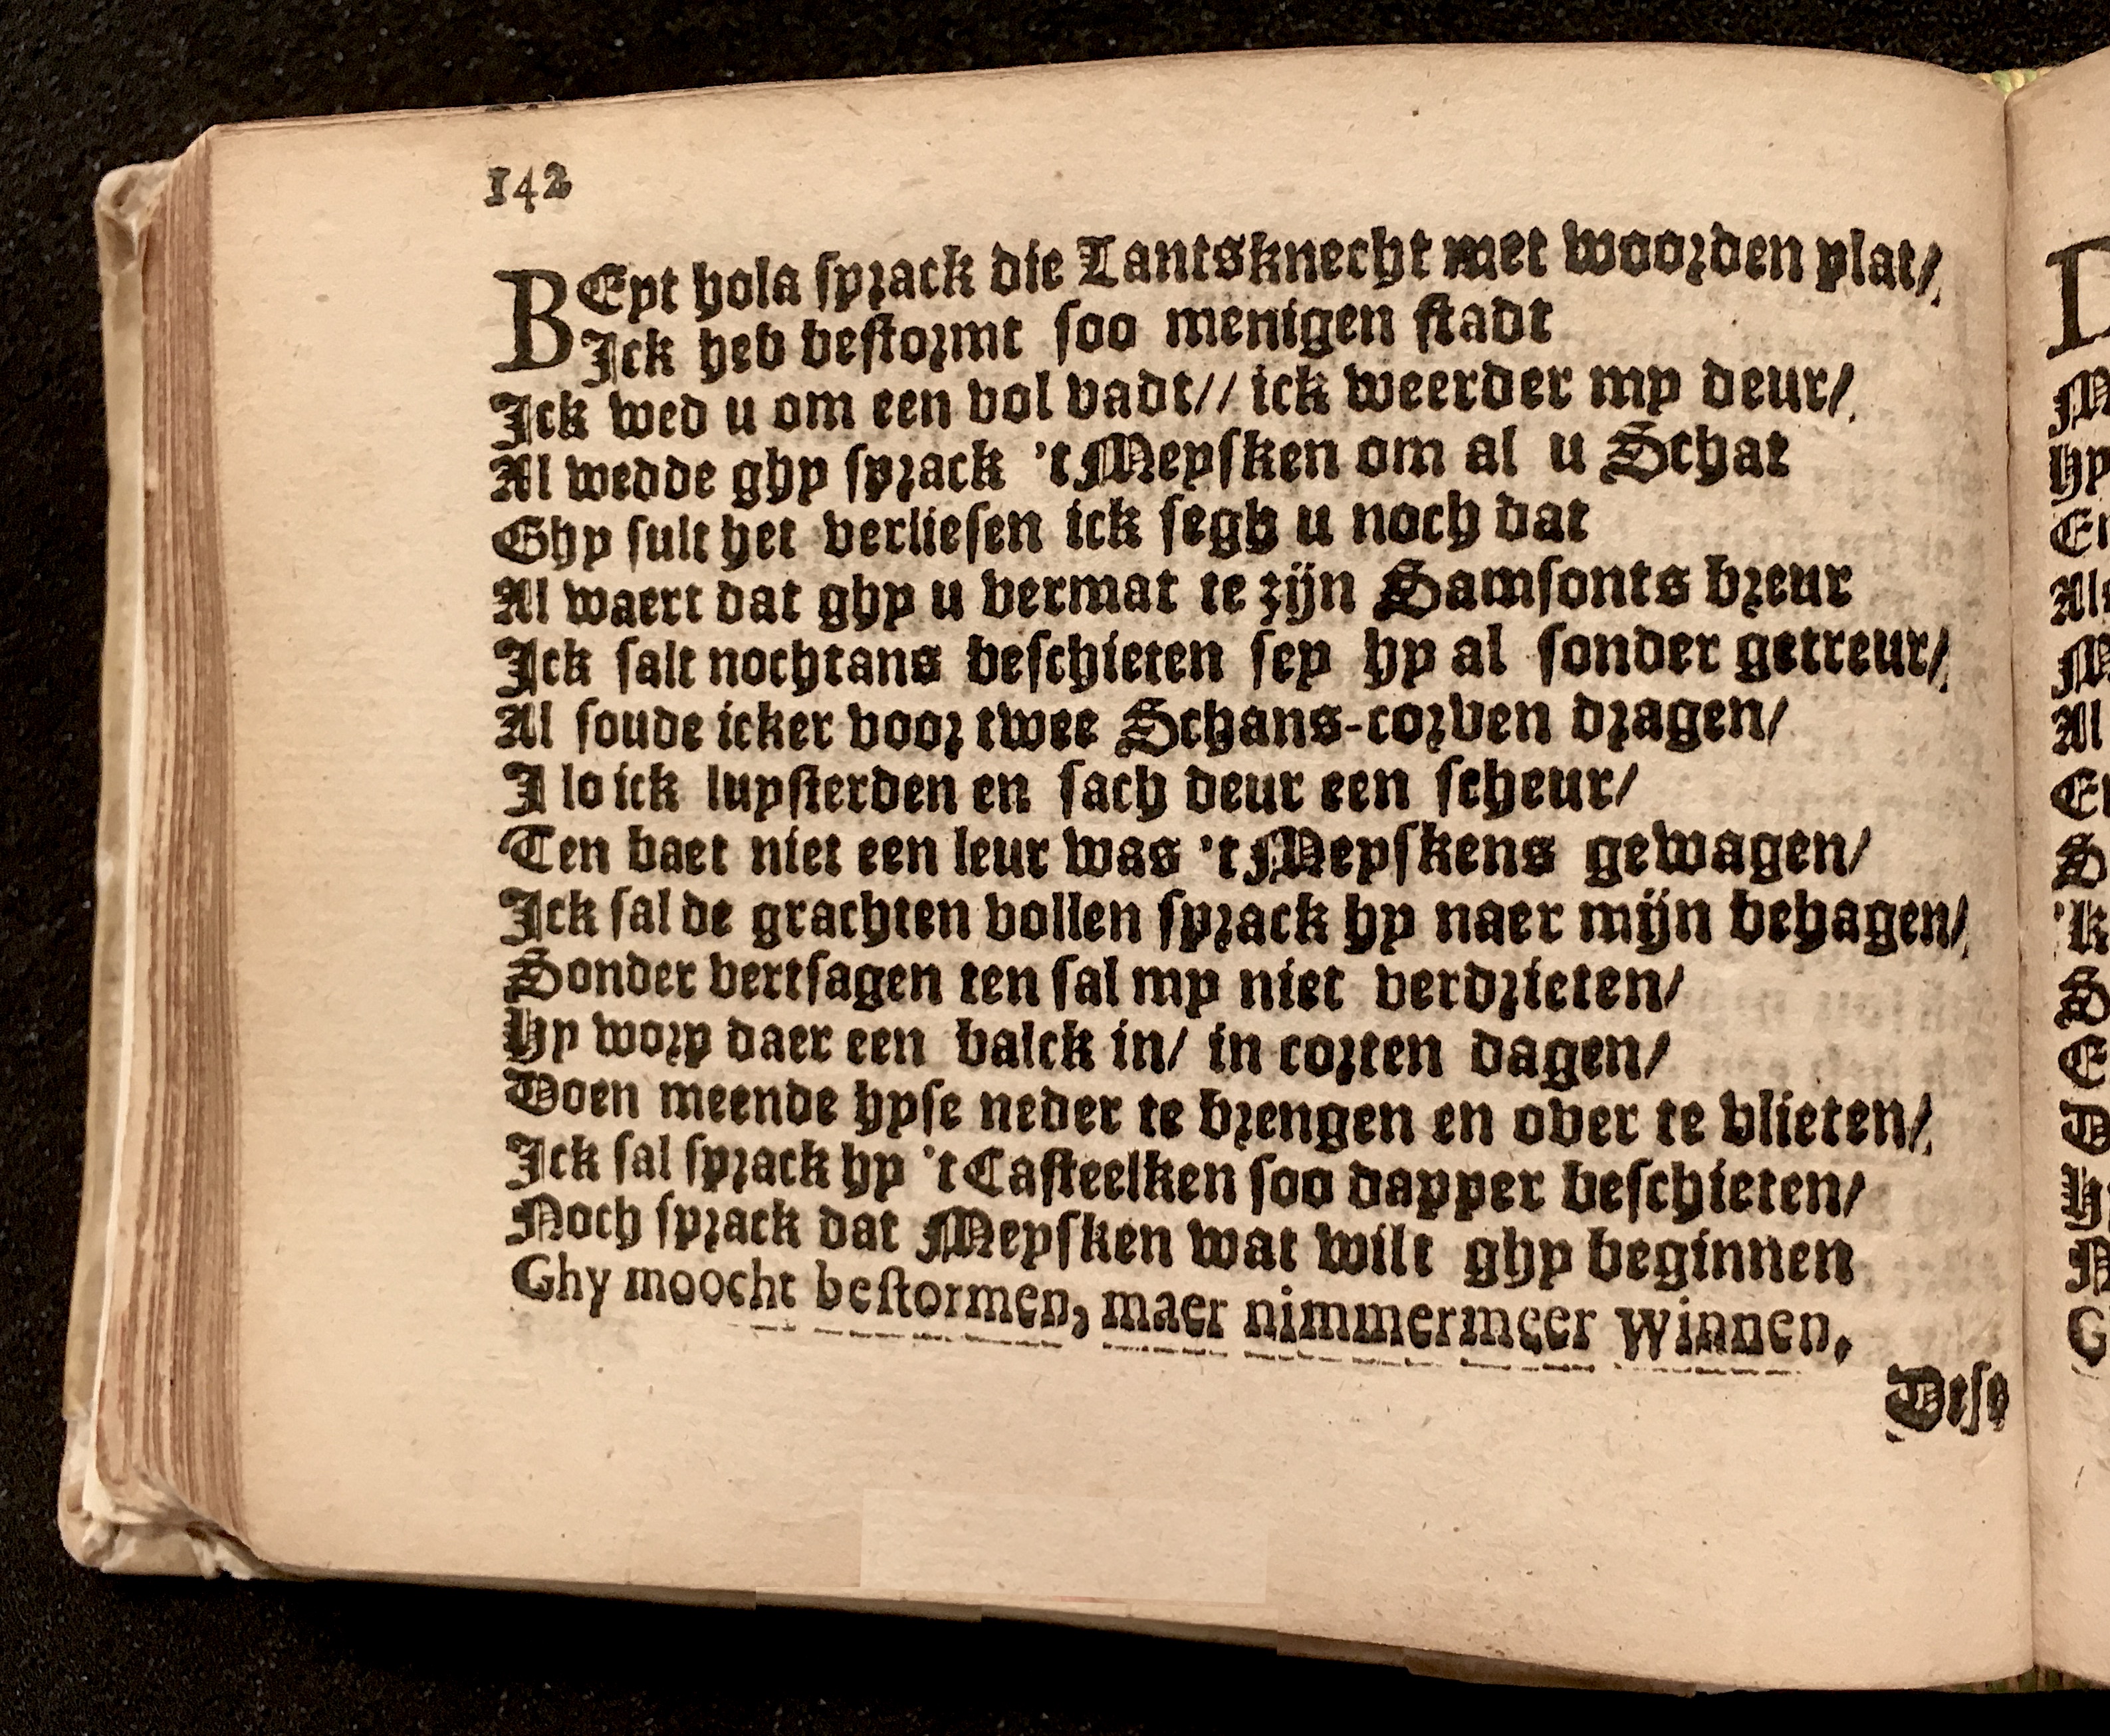 142
BEyt hola sprack die Lantsknecht met woorden plat/
Ick heb bestormt soo menigen stadt
Ick wed u om een vol vadt// ick weerder my deur/
Al wedde ghy sprack 't Meysken om al u Schat
Ghy sult het verliesen ick segh u noch dat
Al waert dat ghy u vermat te zijn Samsonts breur
Ick salt nochtans beschieten sey hy al sonder getreur/
Al soude icker voor twee Schans-corven dragen/
I lo ick luysterden en sach deur een scheur/
Ten baet niet een leur was 't Meyskens gewagen/
Ick sal de grachten vollen sprack hy naer mijn behagen/
Sonder vertsagen ten sal my niet verdrieten/
Hy worp daer een balck in/ in corten dagen/
Doen meende hyse neder te brengen en over te vlieten/
Ick sal sprack hy 't Casteelken soo dapper beschieten/
Noch sprack dat Meysken wat wilt ghy beginnen
Ghy moocht bestormen, maer nimmermeer winnen,
Dese